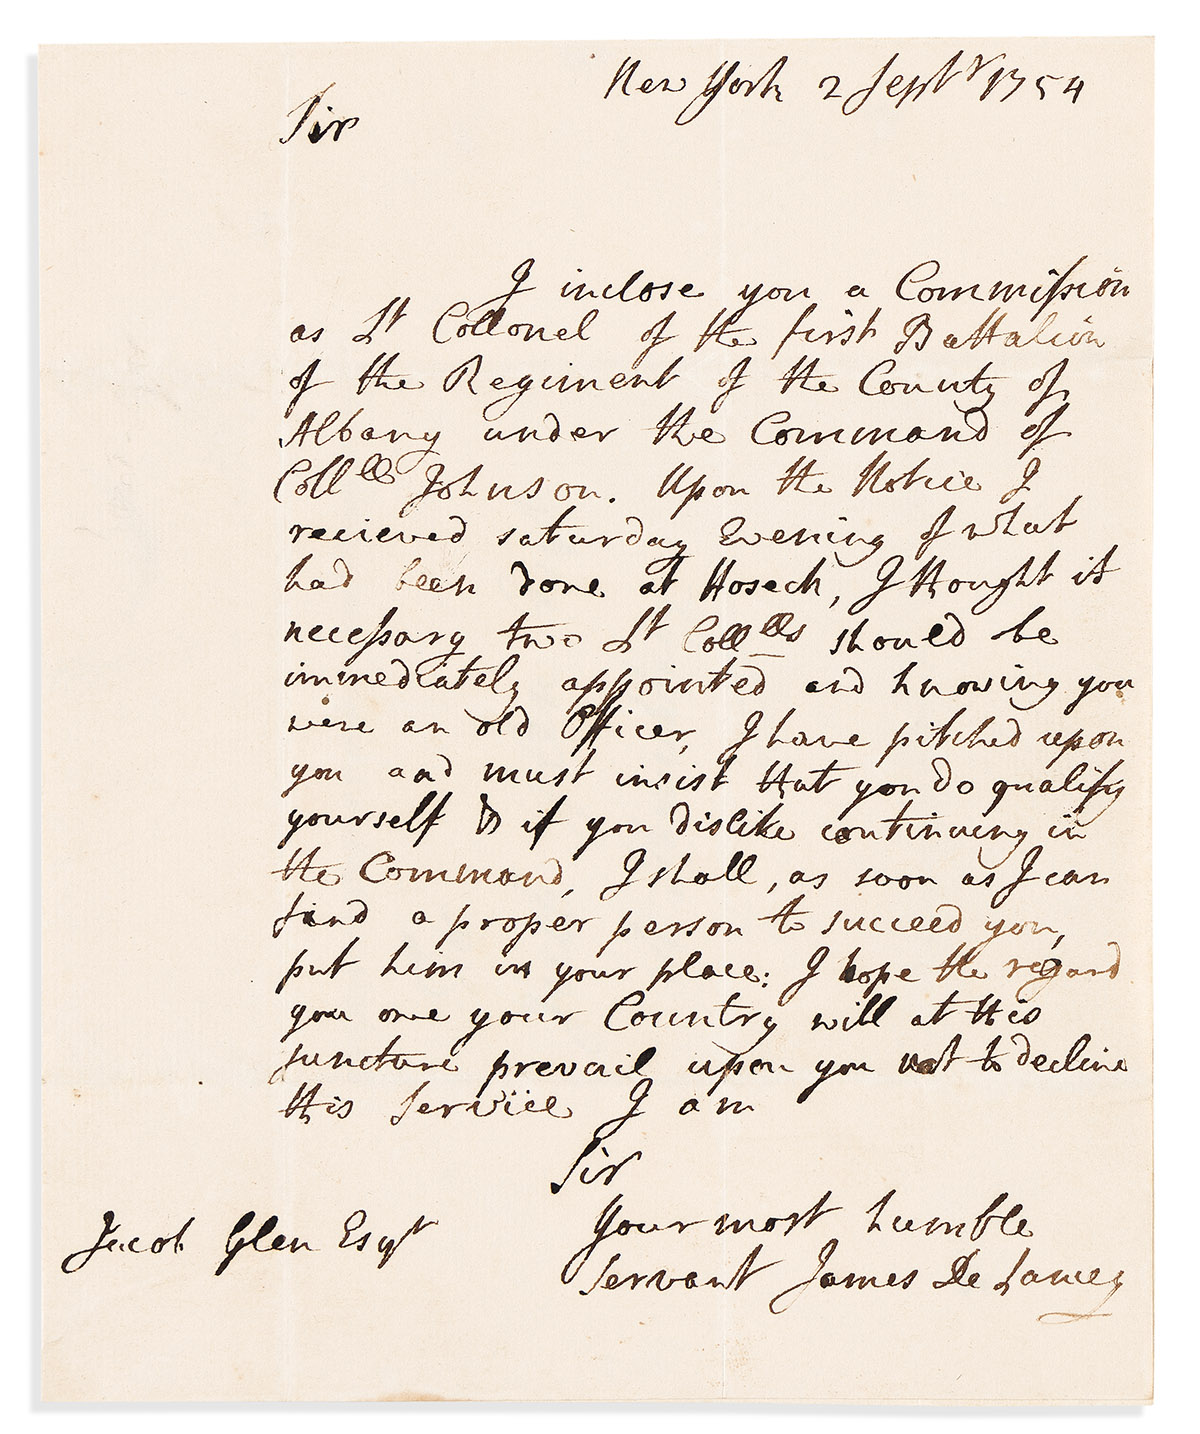 New York 2 Septr 1754
Sir
I inclose you a Commission
as Lt Collonel of the first Battalion
of the Regiment of the County of
Albany under the Command of
Collell Johnson. Upon the Notice I
recieved saturday Evening of what
had been done at Hoseck, I thought it
necessary two Lt Collells should be
immediately appointed and knowing you
were an old Officer, I have pitched upon
you and must insist that you do qualify
yourself & if you dislike continuing in
the Command, I shall, as soon as I can
find a proper person to succeed you,
put him in your place: I hope the regard
you owe your Country will at this
juncture prevail upon you not to decline
this Service I am
Sir
Your most humble
Servant James De Lancey
Jacob Glen Esqr